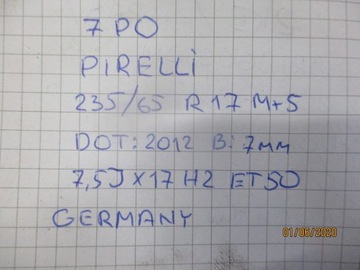 7 PO
PIRELLI
235/65 R 17 M+S
DOT: 2012 B: 7mm
7,5J X 17 H2 ET50
GERMANY
01/06/2020